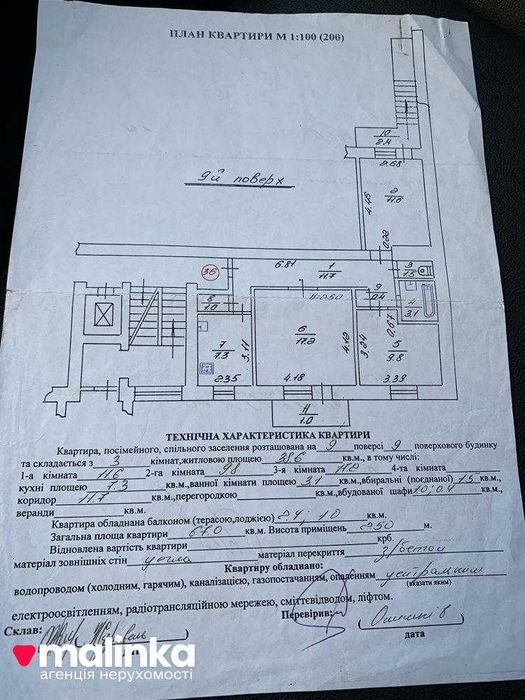 ПЛАН КВАРТИРИ М 1:100 (200)
10
2.4
2.68
2
11.6
4.46
9й поверх
0.22
36
6.81
1
11.7
3
1.5
h=2.50
9
0.4
4
3.1
8
1.0
0.67
7
7.3
3.11
6
17.2
4.12
3.24
5
9.8
2.35
4.18
3.39
11
1.0
ТЕХНІЧНА ХАРАКТЕРИСТИКА КВАРТИРИ
Квартира, посімейного, спільного заселення розташована на 9 поверсі 9 поверхового будинку
та складається з 3 кімнат,житловою площею 38.6 кв.м., в тому числі:
1-а кімната 11.6 2-га кімната 9.8 3-я кімната 17.2 4-та кімната
кухні площею 7.3 кв.м.,ванної кімнати площею 3.1 кв.м.,вбиральні (поєднаної) 1.5 кв.м.,
коридор 11.7 кв.м.,перегородкою кв.м.,вбудованої шафи 1.0; 0.4 кв.м.,
веранди кв.м.
Квартира обладнана балконом (терасою,лоджією) 2.4; 1.0 кв.м.
Загальна площа квартири 67.0 кв.м. Висота приміщень 2.50 м.
Відновлена вартість квартири крб.
матеріал зовнішніх стін цегла матеріал перекриття з/бетон
Квартиру обладнано:
водопроводом (холодним, гарячим), каналізацією, газопостачанням, опаленням центральним
(вказати яким)
електроосвітленням, радіотрансляційною мережею, сміттєвідводом, ліфтом.
Склав: Перевірив:
дата
malinka
агенція нерухомості